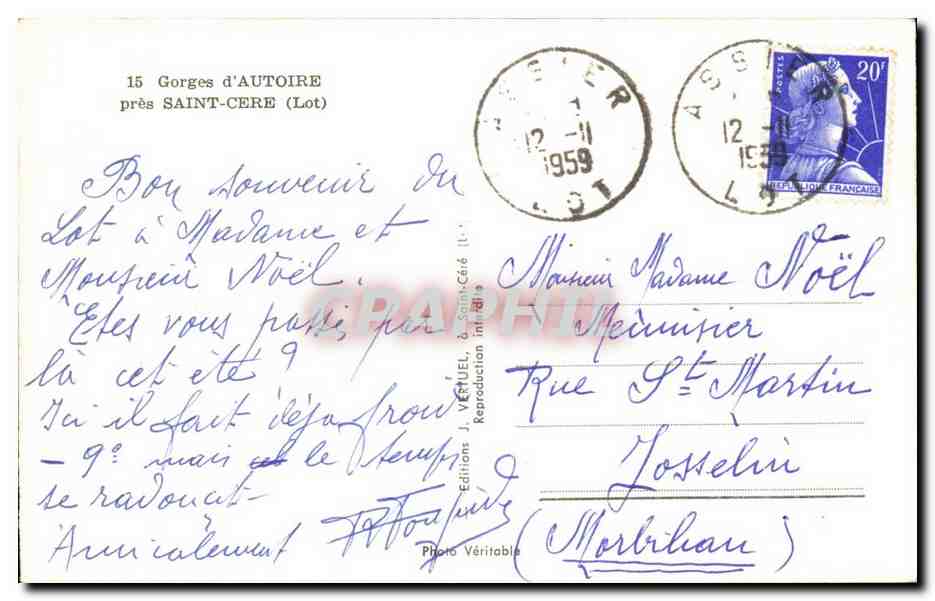 15 Gorges d'AUTOIRE
près SAINT-CERE (Lot)
ASSIER
12 -11
1959
LOT
ASSIER
12 -11
1959
LOT
POSTES
20F
REPUBLIQUE FRANÇAISE
Bon souvenir du
Lot à Madame et
Monsieur Noël.
Etes vous passés par
là cet été ?
Ici il fait déja froid
- 9° mais le temps
se radoucit -
Amicalement
Editions J. VERTUEL, à Saint-Céré (L.
Reproduction interdite
Photo Véritable
Monsieur Madame Noël
Menuisier
Rue St Martin
Josselin
(Morbihan)
GRAPHI